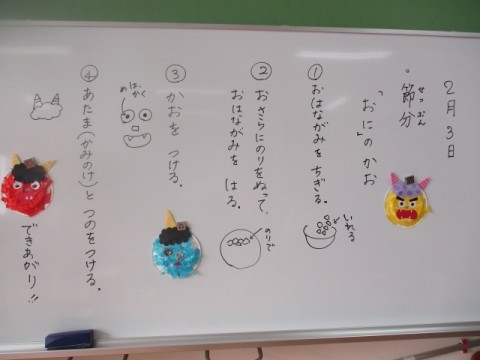 2月3日
・節分
せつぶん
「おに」のかお
① おはながみを ちぎる。
いれる
② おさらにのりをぬって、
おはながみを はる。
のりで
③ かおを つける。
め はな、くち
④ あたま(かみのけ)と つのをつける。
できあがり!!